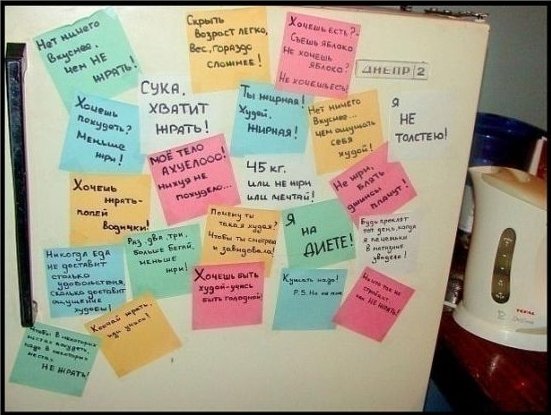 Нет ничего
вкуснее,
чем НЕ
ЖРАТЬ!
Скрыть
возраст легко,
Вес, гораздо
сложнее!
Хочешь есть?-
Съешь яблоко
Не хочешь
яблоко?
Не хочешь есть!
ДНЕПР 2
Хочешь
похудеть?
Меньше
жри!
СУКА,
ХВАТИТ
ЖРАТЬ!
Ты жирная!
Худей,
ЖИРНАЯ!
Нет ничего
Вкуснее...
чем ощущать
себя
худой!
Я
НЕ
ТОЛСТЕЮ!
МОЁ ТЕЛО
АХУЕЛООО!
нихуя не
похудело...
45 кг.
ИЛИ НЕ ЖРИ
ИЛИ МЕЧТАЙ!
Не жри,
БЛЯТЬ
джинсы
плачут!
Хочешь
ЖРАТЬ-
попей
водички!
Почему ты
такая худая?
Чтобы ты смотрела
и завидовала!
Я
НА
ДИЕТЕ!
Будь проклят
тот день, когда
я печеньки
в магазине
увидела!
Никогда ЕДА
не доставит
столько
удовольствия,
сколько доставит
ощущение
худобы!
Раз, два, три,
больше бегай,
меньше
жри!
Хочешь быть
худой-учись
быть голодной!
Кушать надо!
P.S. Но не мне
Ничто так не
стройнит
как НЕ ЖРАТЬ!
Чтобы в некоторых
местах похудеть,
надо в некоторых
местах
НЕ ЖРАТЬ!
Кончай жрать,
иди учись!
TEFAL